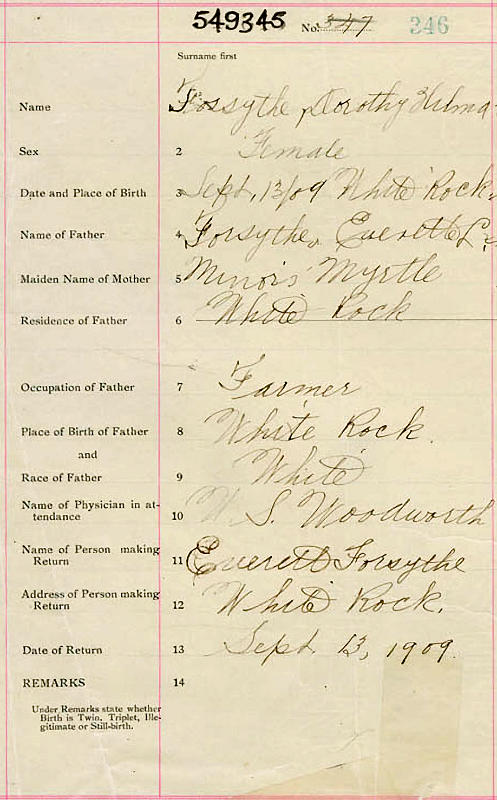 549345 No. 347 346
Surname first
Name Forsythe, Dorothy Hilma
Sex 2 Female
Date and Place of Birth 3 Sept, 13/09 White Rock.
Name of Father 4 Forsythe, Everette L.
Maiden Name of Mother 5 Minors Myrtle
Residence of Father 6 White Rock
Occupation of Father 7 Farmer
Place of Birth of Father 8 White Rock.
and
Race of Father 9 White
Name of Physician in at-
tendance 10 W S. Woodworth
Name of Person making
Return 11 Everett Forsythe
Address of Person making
Return 12 White Rock.
Date of Return 13 Sept. 13, 1909.
REMARKS 14
Under Remarks state whether
Birth is Twin, Triplet, Ille-
gitimate or Still-birth.